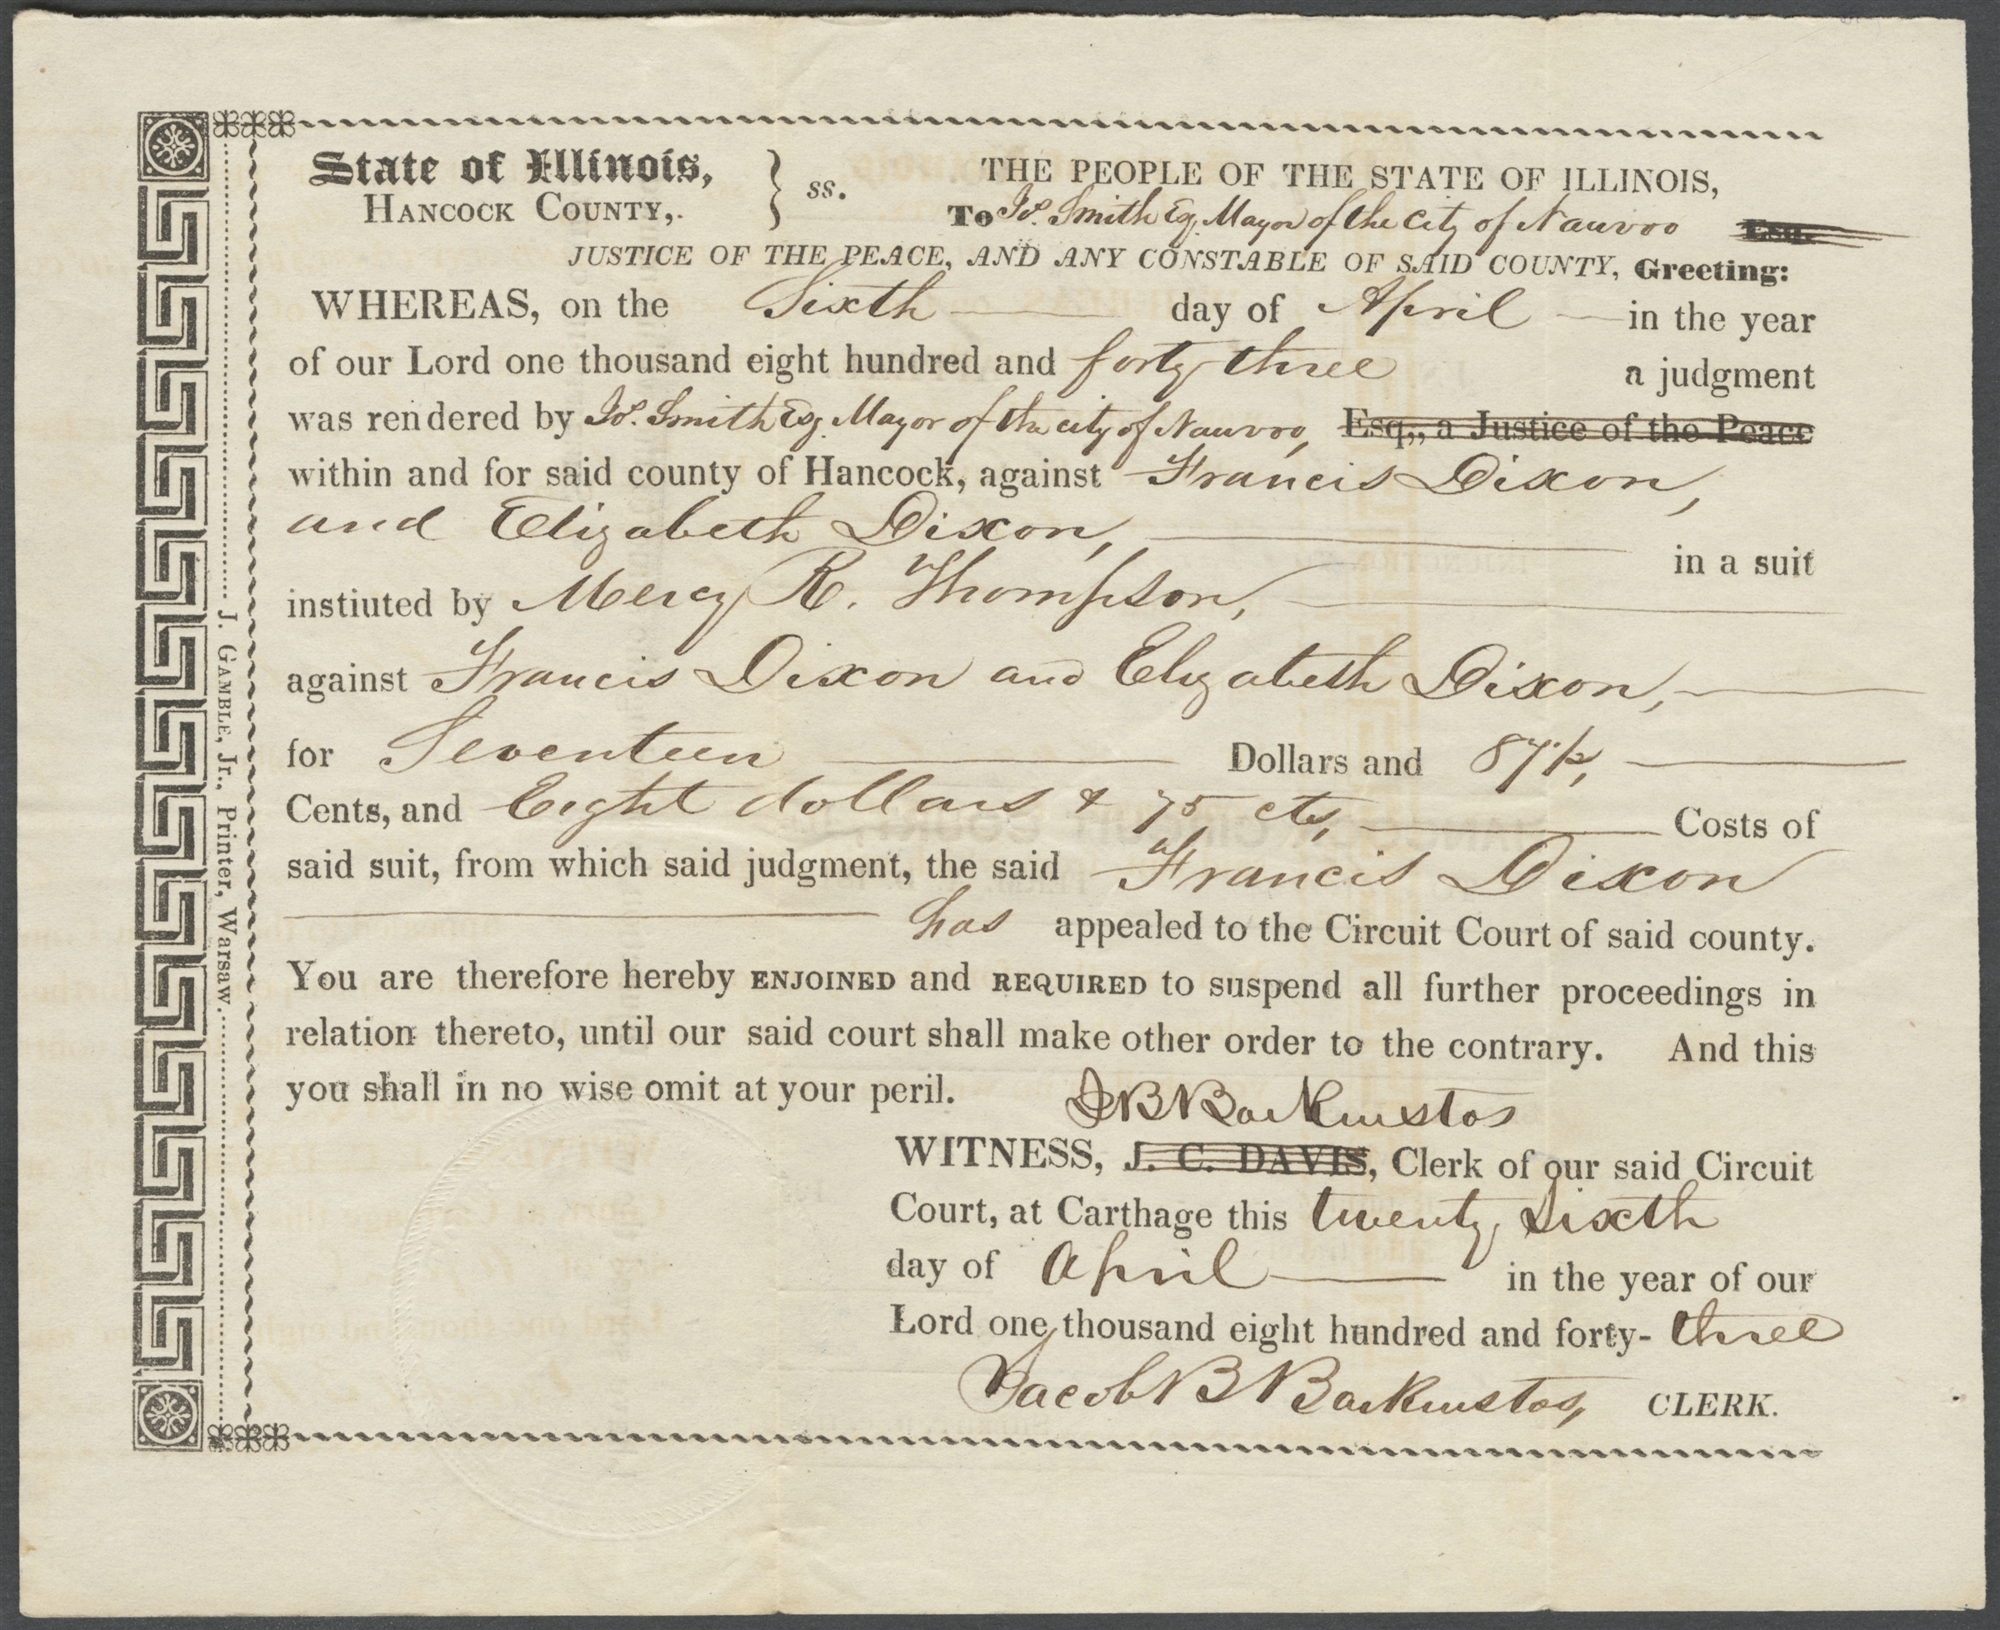 State of Illinois, } ss. THE PEOPLE OF THE STATE OF ILLINOIS,
HANCOCK COUNTY,. To Jos. Smith Esq. Mayor of the city of Nauvoo Esq.
JUSTICE OF THE PEACE, AND ANY CONSTABLE OF SAID COUNTY, Greeting:
WHEREAS, on the Sixth day of April in the year
of our Lord one thousand eight hundred and forty three a judgment
was rendered by Jos. Smith Esq. Mayor of the city of Nauvoo, Esq,, a Justice of the Peace
within and for said county of Hancock, against Francis Dixon,
and Elizabeth Dixon, in a suit
instiuted by Mercy R. Thompson,
against Francis Dixon and Elizabeth Dixon,
for Seventeen Dollars and 87 1/2,
Cents, and Eight dollars & 75 cts, Costs of
said suit, from which said judgment, the said Francis Dixon
has appealed to the Circuit Court of said county.
You are therefore hereby ENJOINED and REQUIRED to suspend all further proceedings in
relation thereto, until our said court shall make other order to the contrary. And this
you shall in no wise omit at your peril.
J B Backenstos
WITNESS, J. C. DAVIS, Clerk of our said Circuit
Court, at Carthage this twenty Sixth
day of April in the year of our
Lord one thousand eight hundred and forty- three
Jacob B Backenstos, CLERK.
J. GAMBLE, Jr., Printer, Warsaw.